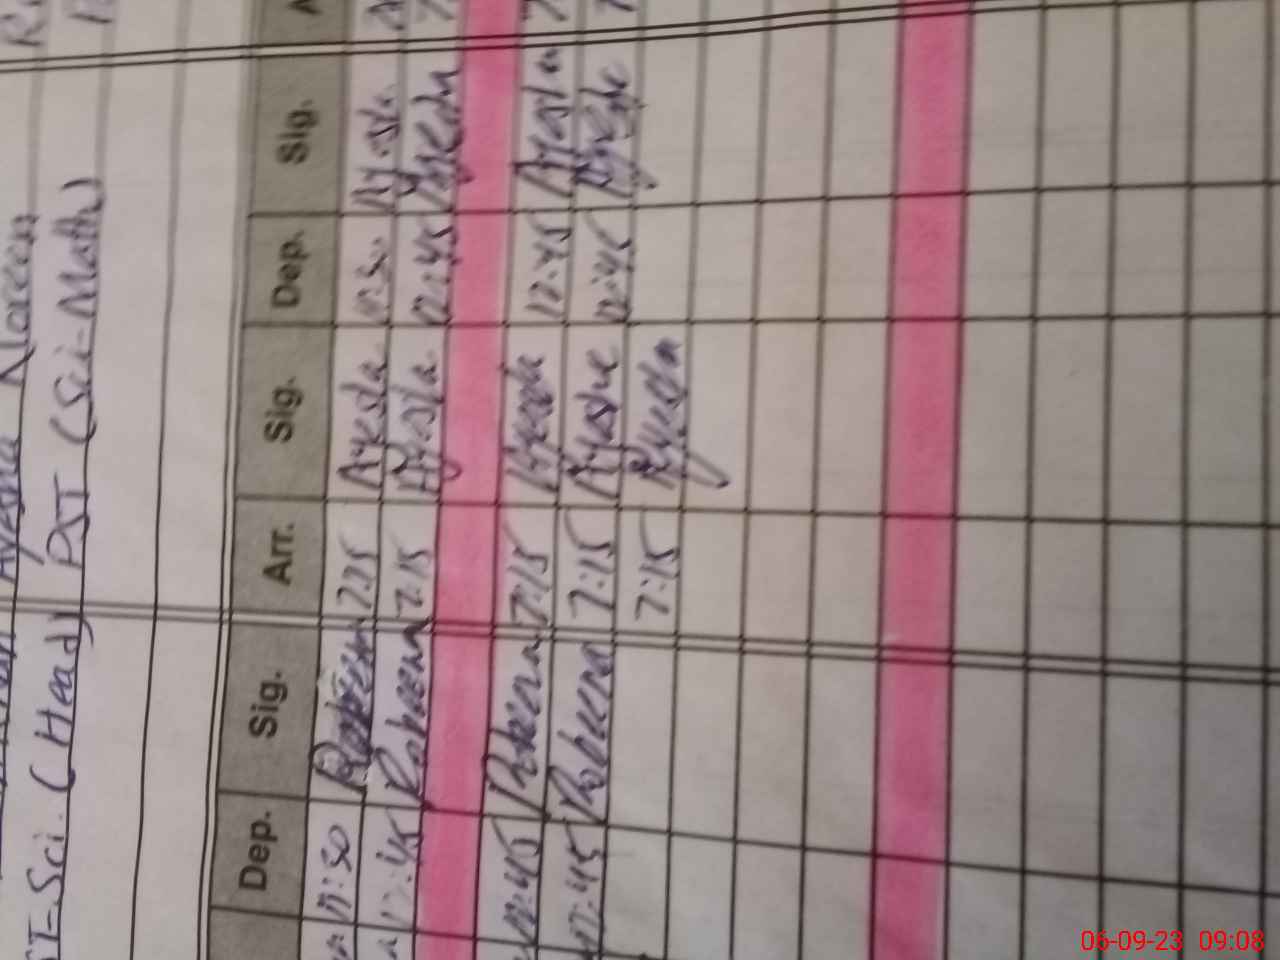 Ayesha Noreen
ST-Sci. (Head) PST (Sci-Math)
Dep. Sig. Arr. Sig. Dep. Sig.
11:30 7:15 Ayesha 11:30 Ayesha
12:45 Robeena 7:15 Ayesha 12:45 Ayesha
12:45 Robeena 7:15 Ayesha 12:45 Ayesha
12:45 Robeena 7:15 Ayesha 12:45 Ayesha
7:15 Ayesha
06-09-23 09:08